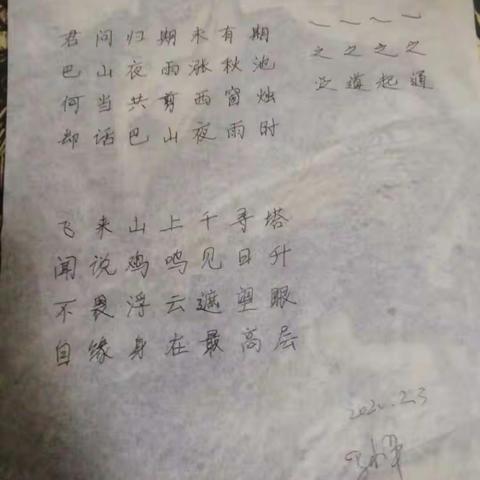 君问归期未有期
巴山夜雨涨秋池
何当共剪西窗烛
却话巴山夜雨时
飞来山上千寻塔
闻说鸡鸣见日升
不畏浮云遮望眼
自缘身在最高层
之之之之
起通
2020.2.3